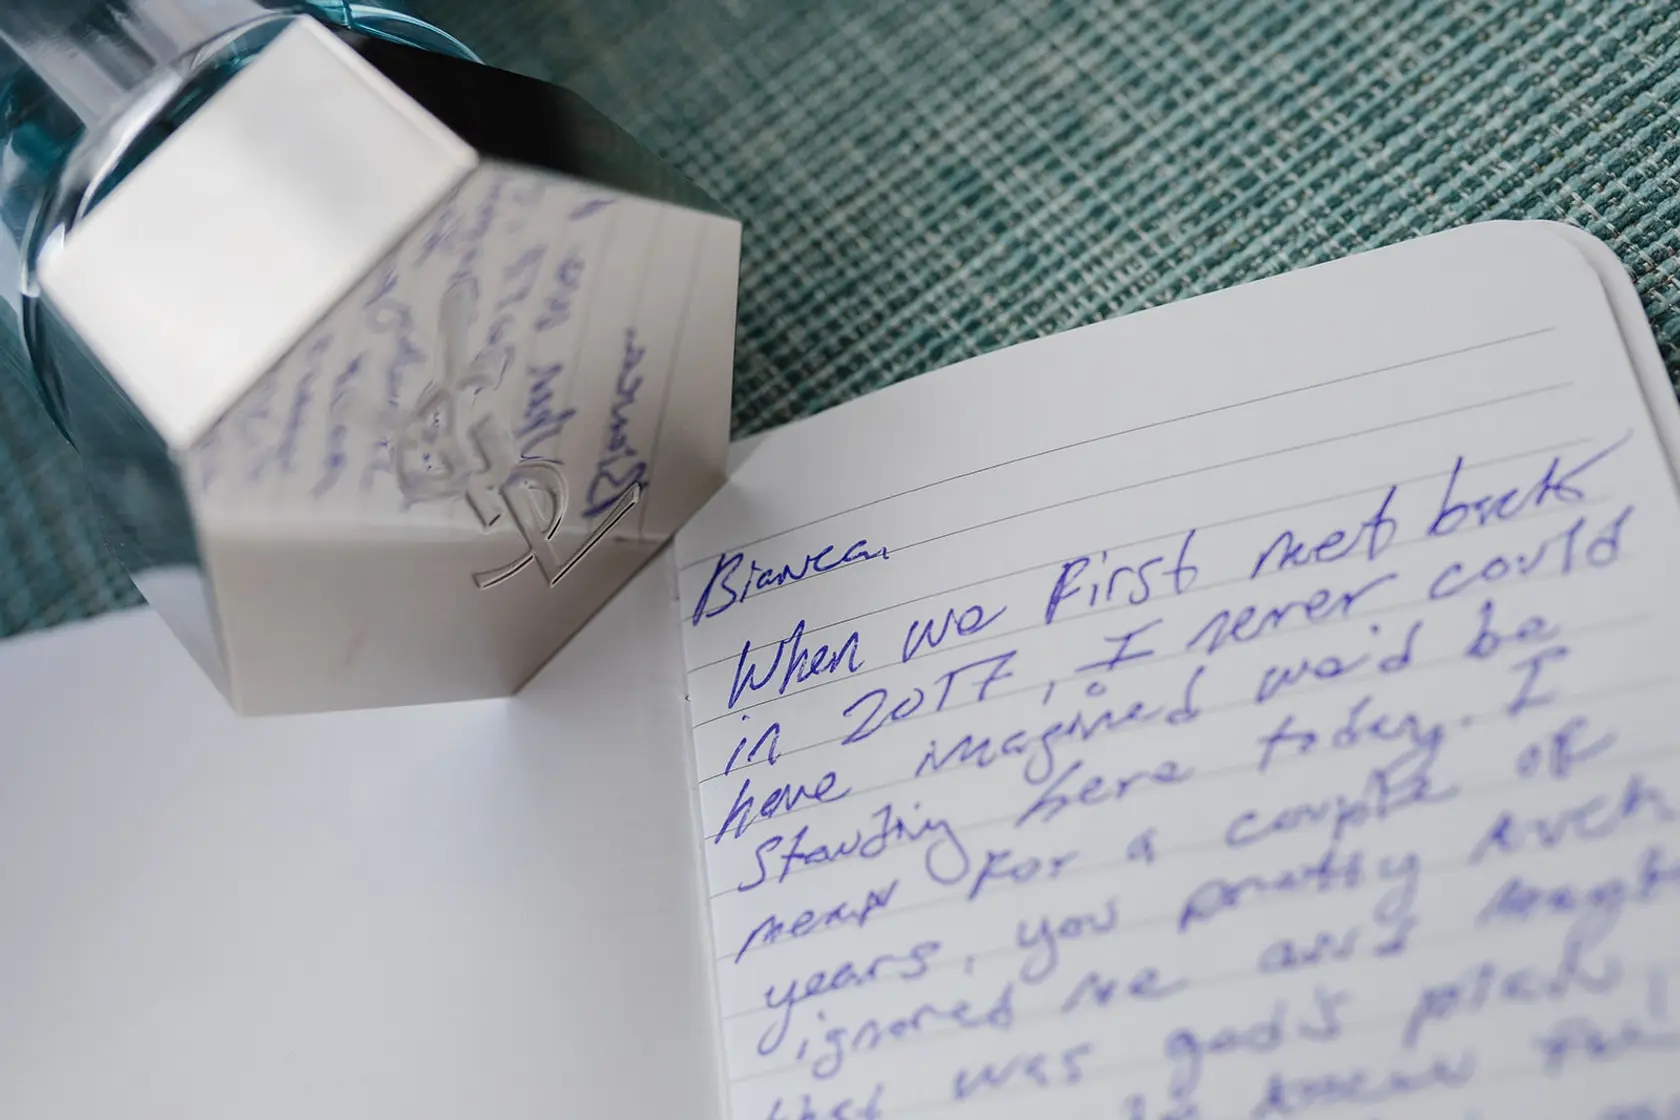 Bianca,
When we first met back
in 2017, I never could
have imagined we'd be
standing here today. I
mean for a couple of
years, you pretty much
ignored me and maybe
that was god's plan,